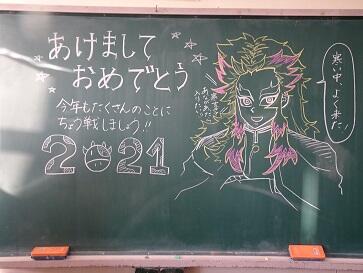 あけまして
おめでとう
今年もたくさんのことに
ちょう戦しましょう!!
2021
寒い中、
よく来た!